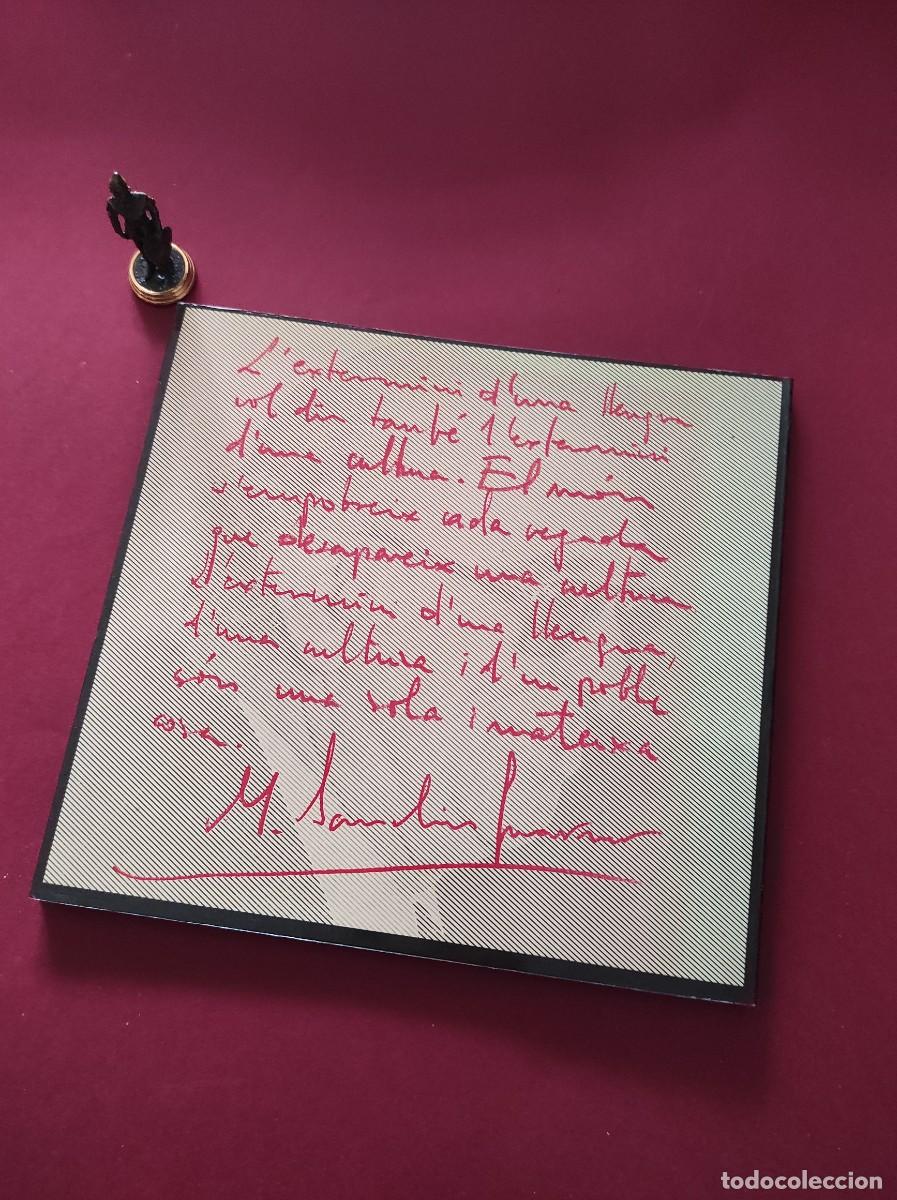 L'extermini d'una llengua
vol dir també l'extermini
d'una cultura. El món
s'empobreix cada vegada
que desapareix una cultura
L'extermini d'una llengua,
d'una cultura i d'un poble
són una sola i mateixa
cosa.
M. Sanchis Guarner
todocoleccion